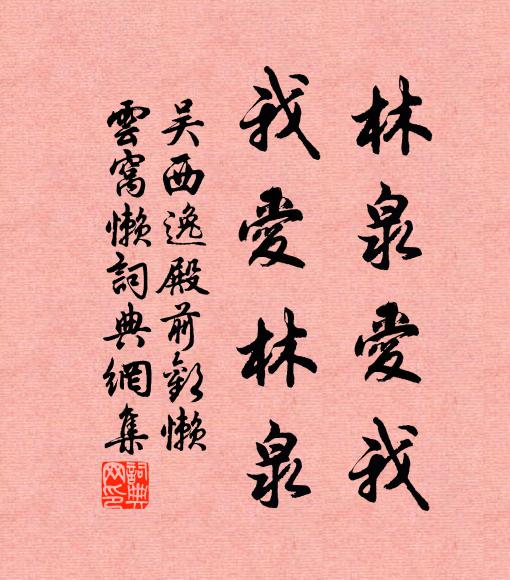 林泉愛我
我愛林泉
吴西逸殿前歡懶
雲窩懶詞典網集
詞典網印